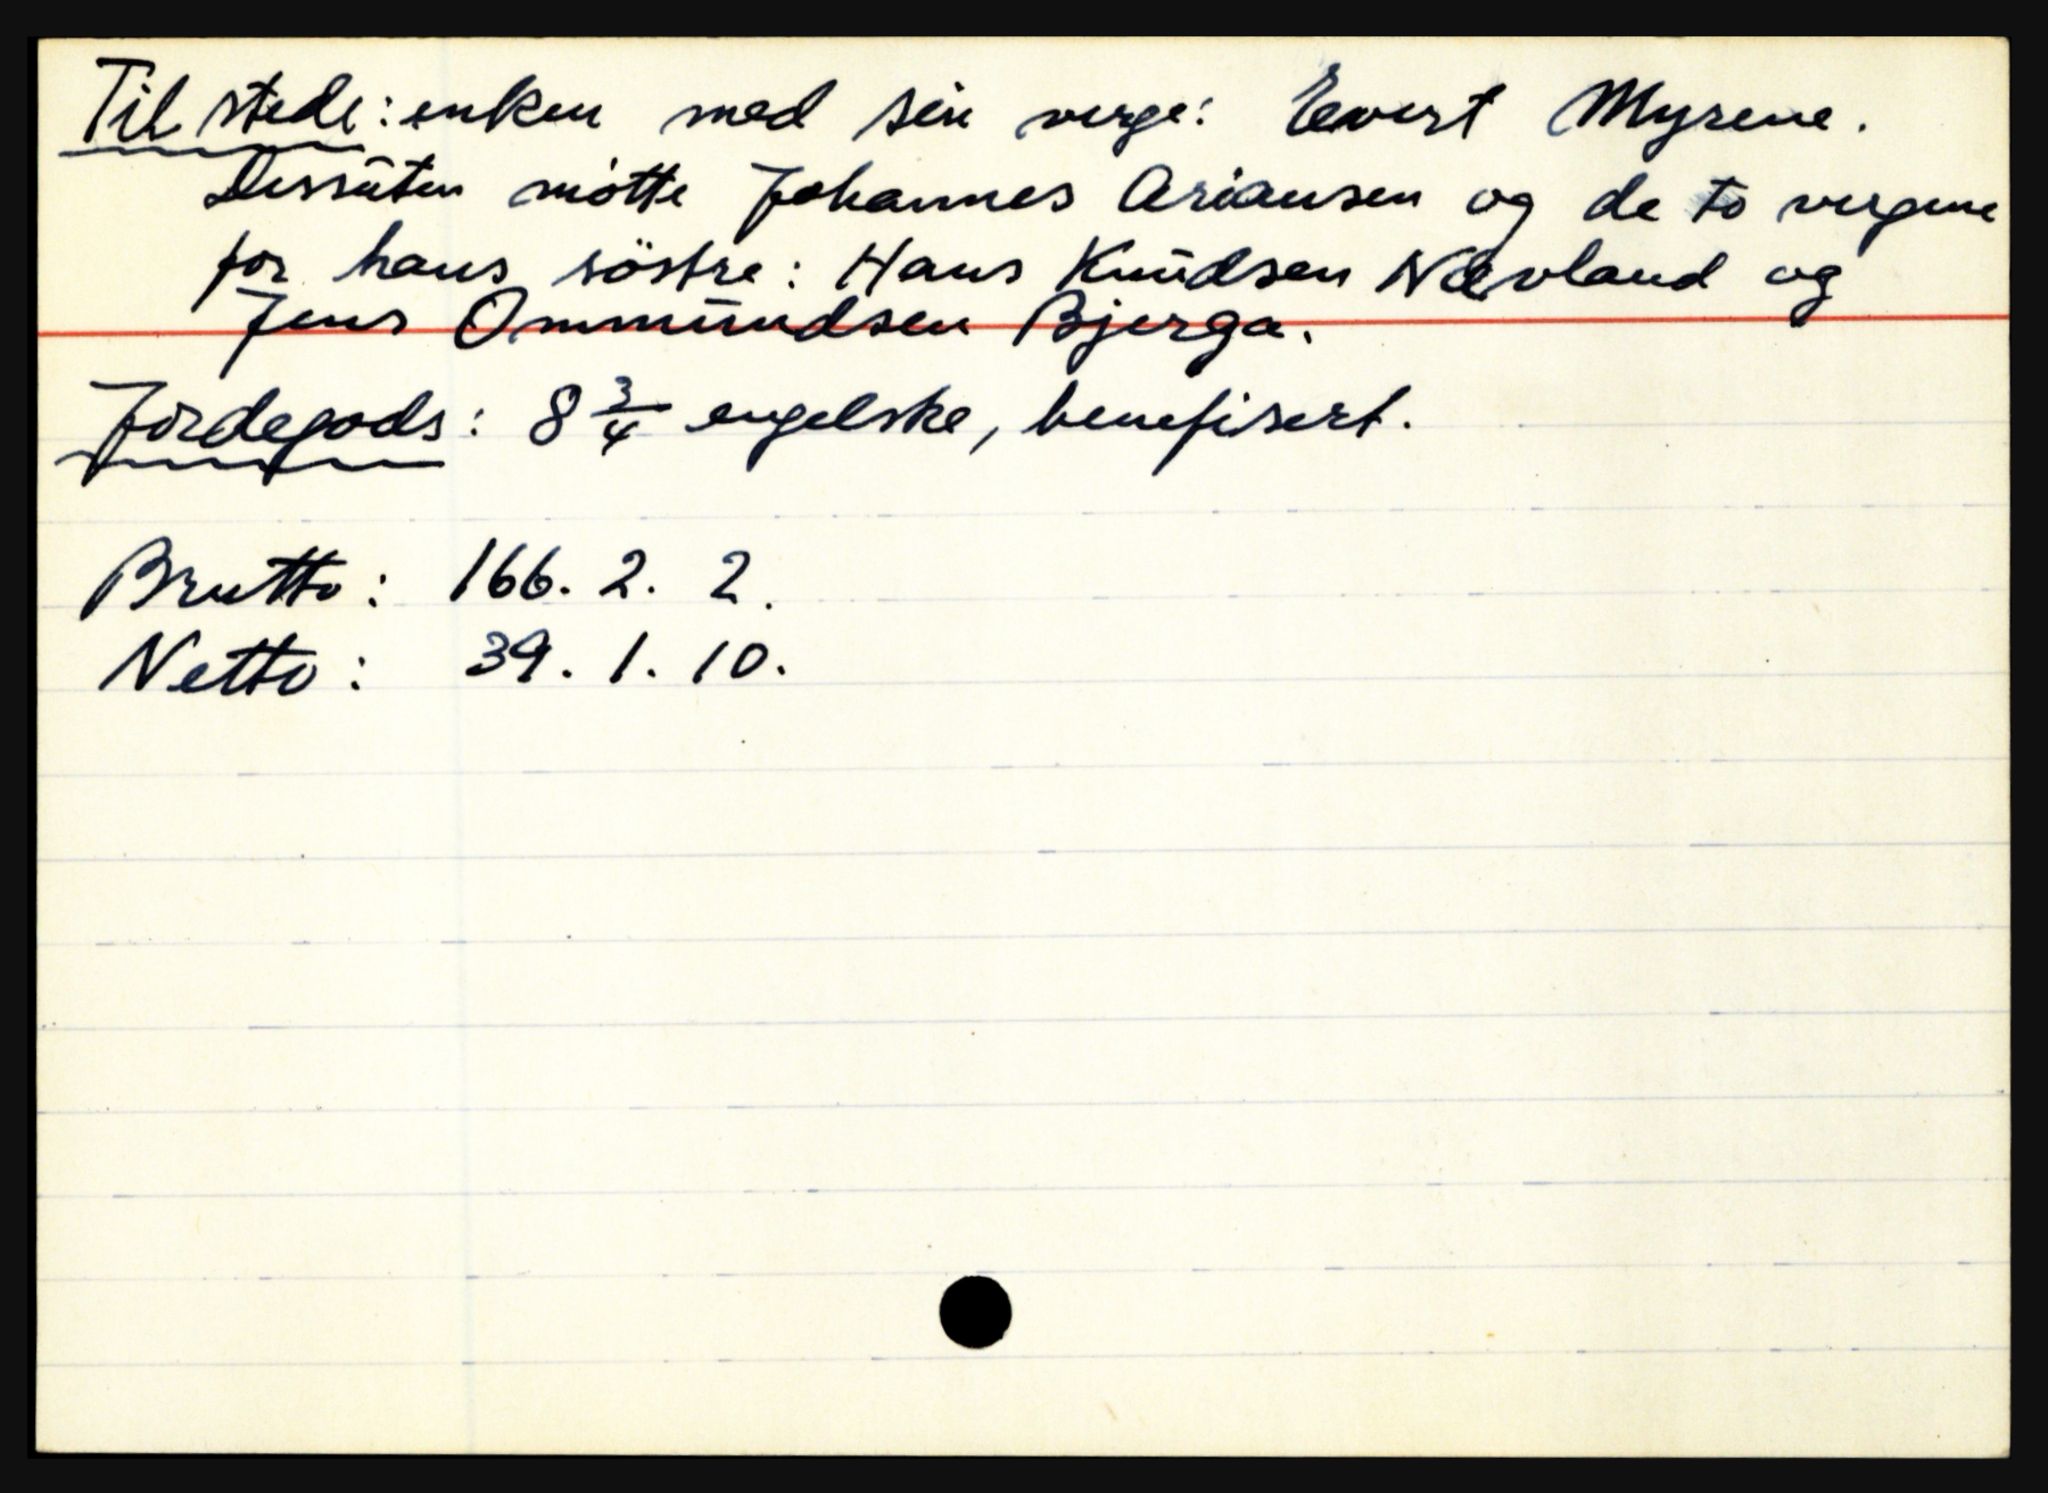 Til stede: enken med sin verge: Evert Myrene.
Dessuten møtte Johannes Ariansen og de to vergene
for hans söstre: Hans Knudsen Nævland og
Jens Ommundsen Bjerga.
Jordegods: 8 3/4 engelske, benefisert.
Brutto: 166. 2. 2.
Netto: 39. 1. 10.